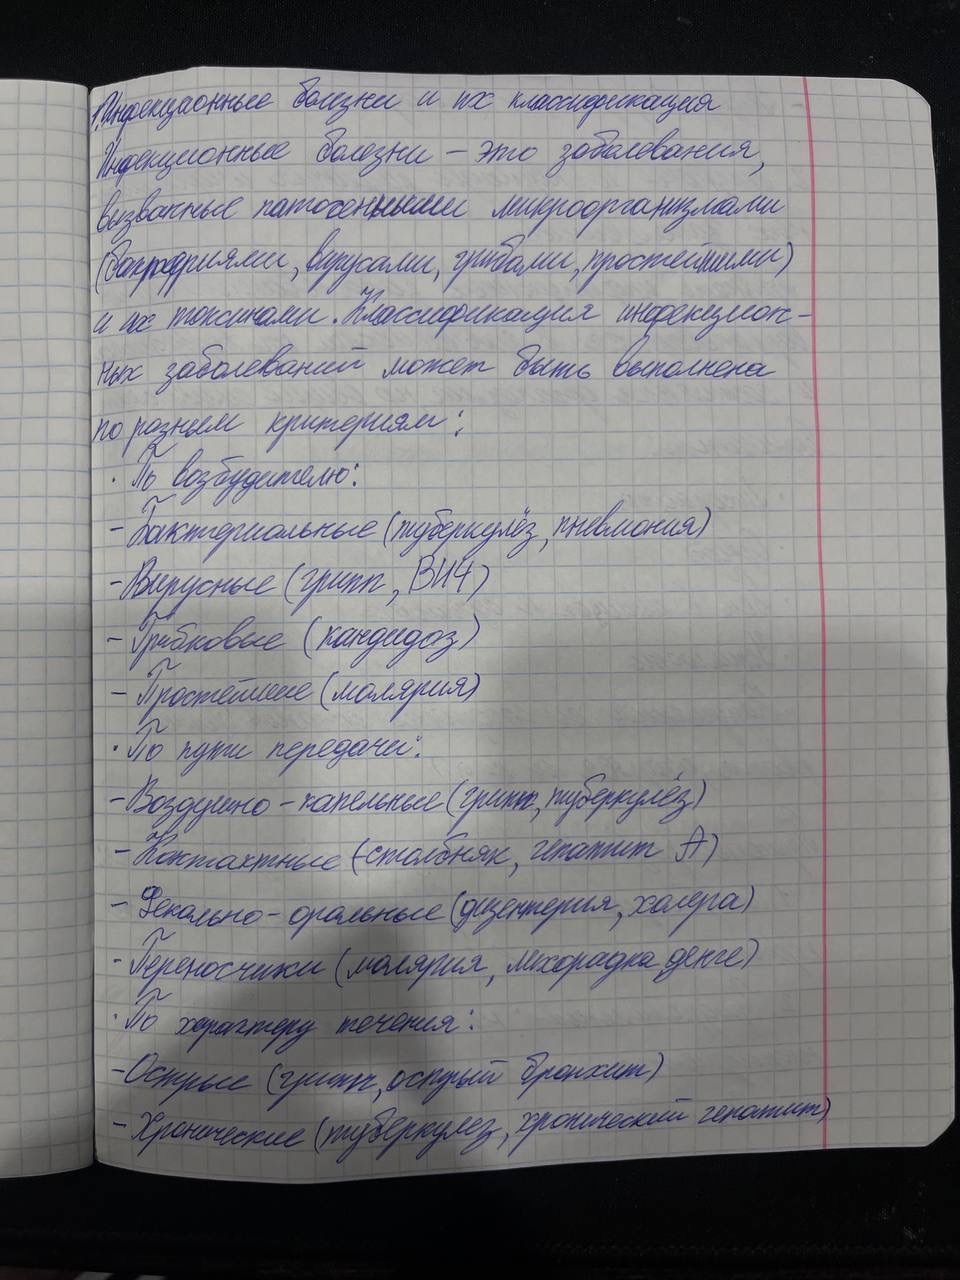 1. Инфекционные болезни и их классификация
Инфекционные болезни – это заболевания,
вызванные патогенными микроорганизмами
(бактериями, вирусами, грибами, простейшими)
и их токсинами. Классификация инфекцион-
ных заболеваний может быть выполнена
по разным критериям:
· По возбудителю:
– Бактериальные (туберкулёз, пневмония)
– Вирусные (грипп, ВИЧ)
– Грибковые (кандидоз)
– Простейшие (малярия)
· По пути передачи:
– Воздушно-капельные (грипп, туберкулёз)
– Контактные (столбняк, гепатит А)
– Фекально-оральные (дизентерия, холера)
– Переносчики (малярия, лихорадка денге)
· По характеру течения:
– Острые (грипп, острый бронхит)
– Хронические (туберкулез, хронический гепатит)